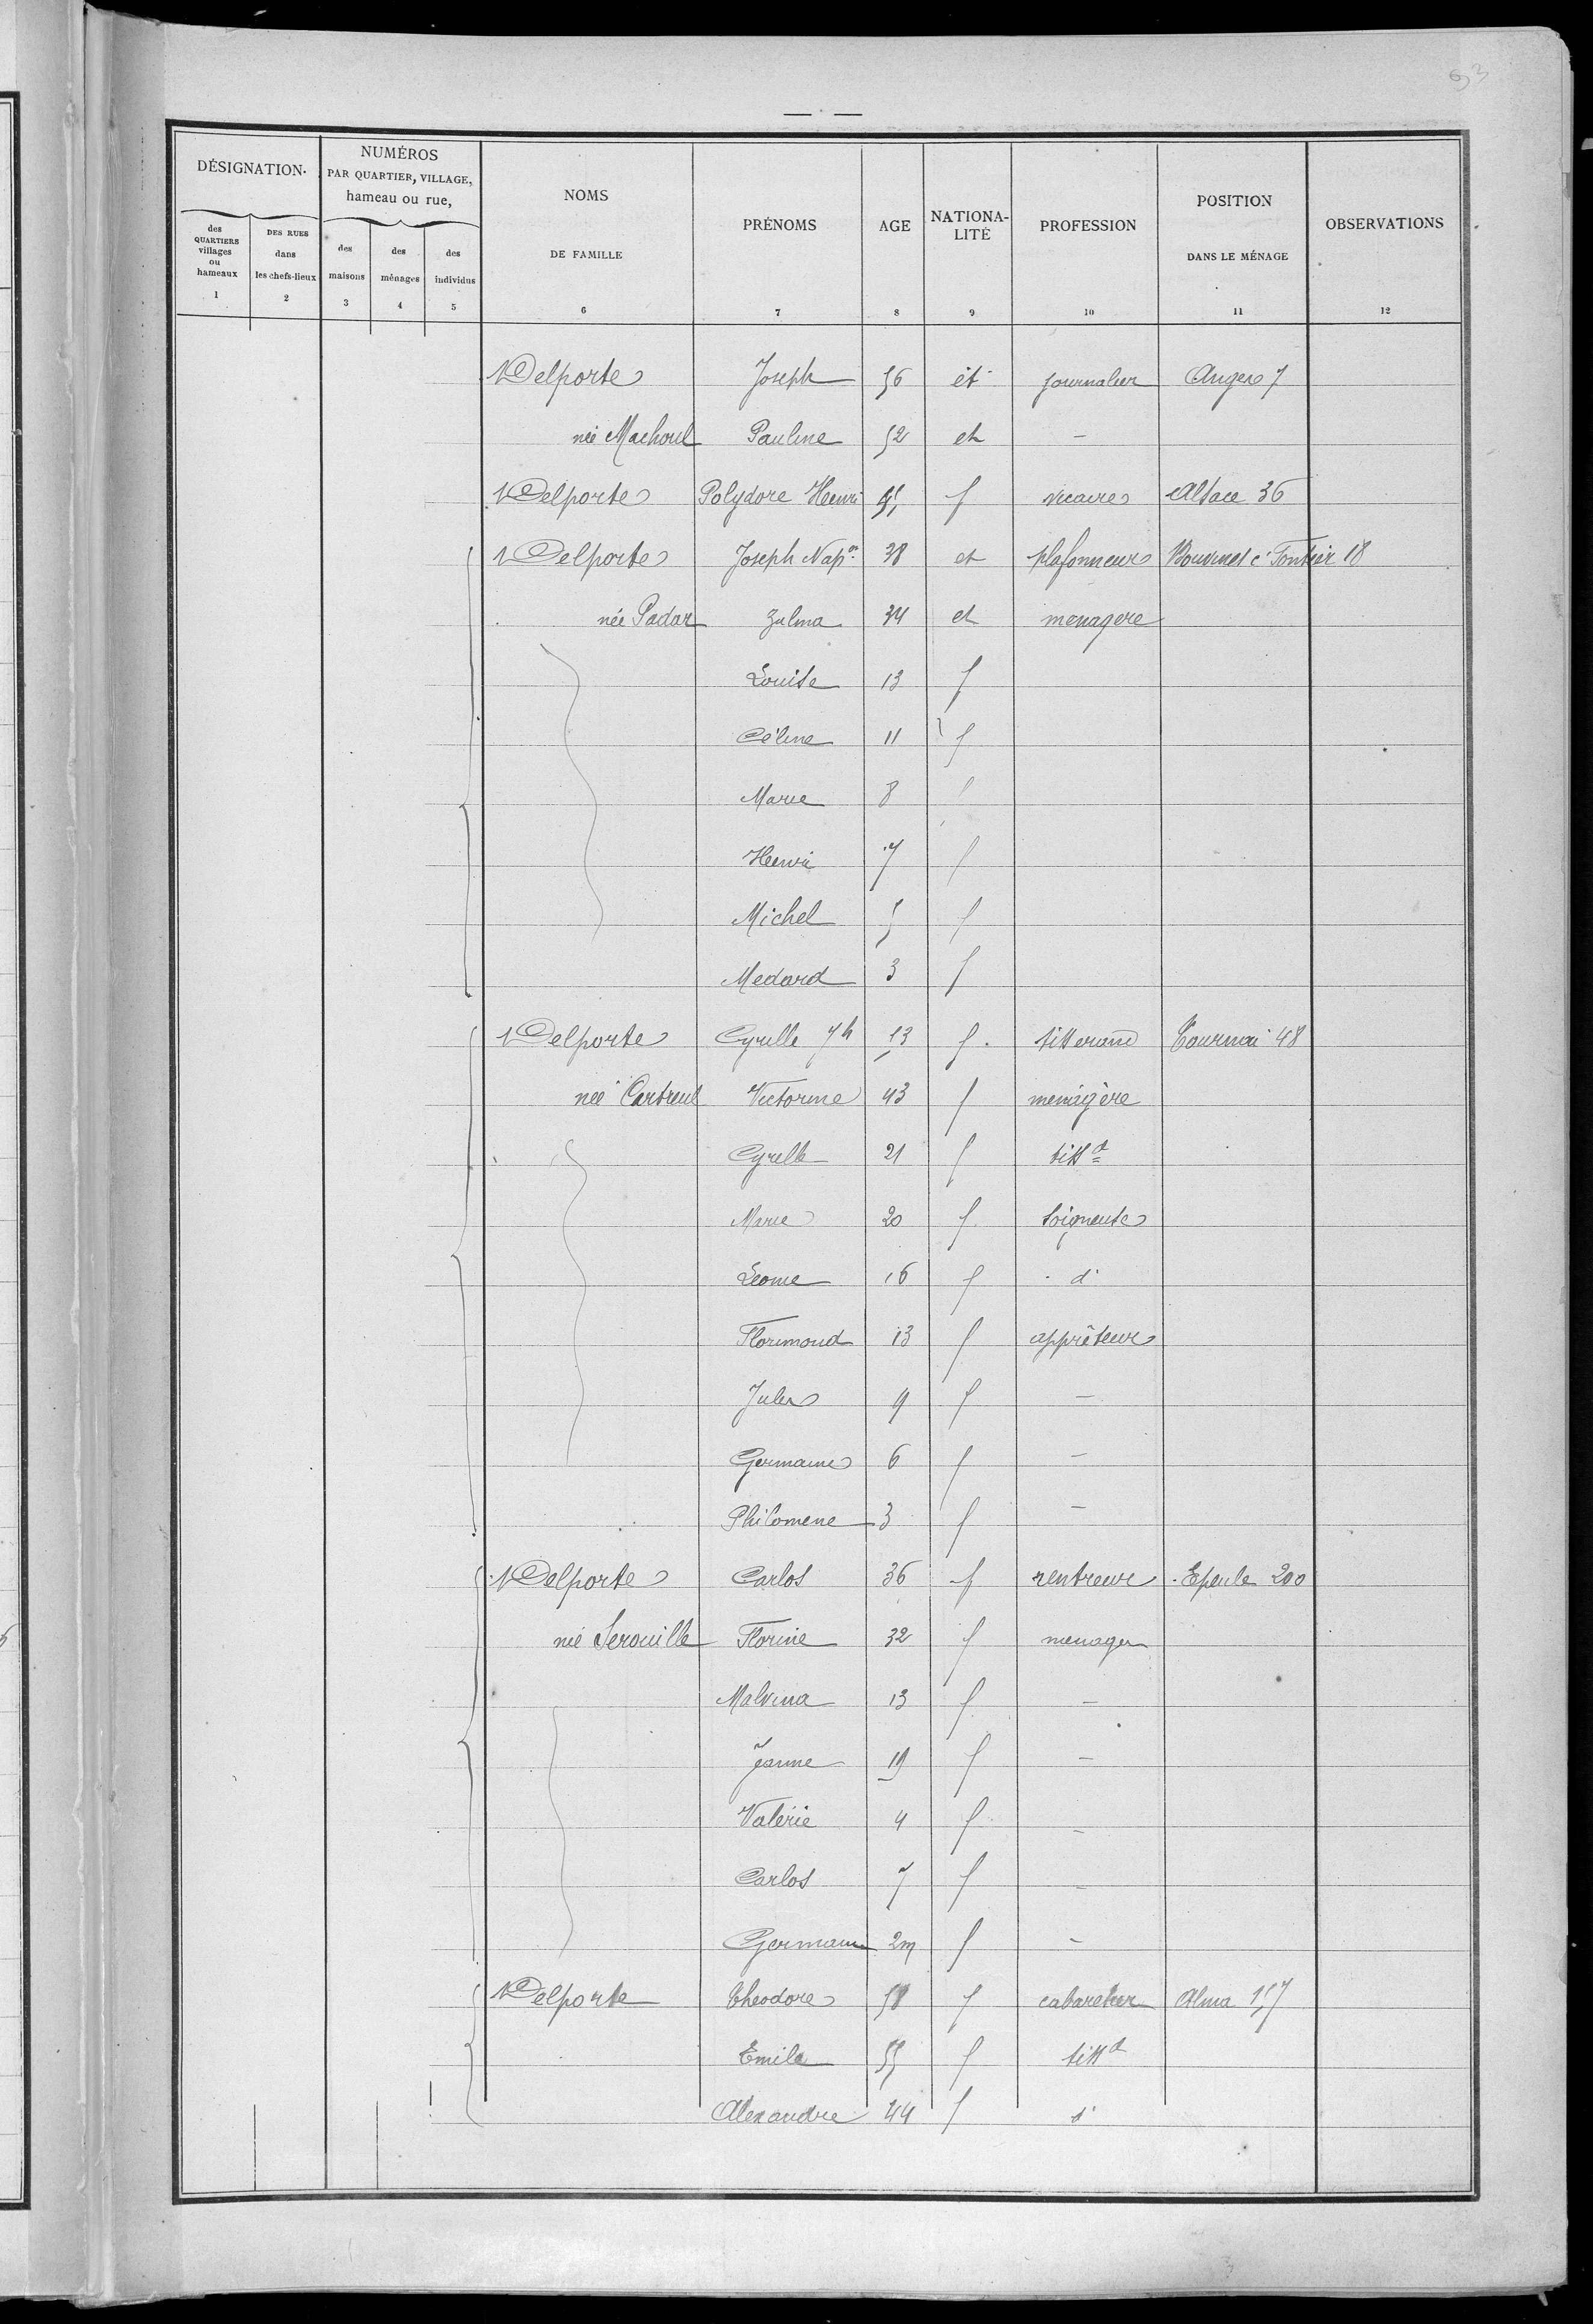 DÉSIGNATION.
NUMÉROS
PAR QUARTIER, VILLAGE,
hameau ou rue,
des QUARTIERS villages ou hameaux 1
DES RUES dans les chefs-lieux 2
des maisons 3
des ménages 4
des individus 5
NOMS DE FAMILLE 6
PRÉNOMS 7
AGE 8
NATIONA-LITÉ 9
PROFESSION 10
POSITION DANS LE MÉNAGE 11
OBSERVATIONS 12
Delporte Joseph 56 ét journalier Anges 7
née Pauline 52 et –
Delporte Polydore Henri f vicaire Alsace 36
Delporte Joseph Napon 38 et plafonneur 18
née Padar Zulma 34 et menagere
Louise 13 f
Céline 11 f
Marie 8 f
Henri 7 f
Michel 5 f
Medard 3 f
Delporte Cyrille Jh f. tisserand Tournai 48
née Victorine 43 f menagère
Cyrille 21 f tissd
Marie 20 f soigneuse
Leonie 16 f d°
Florimond 13 f apprêteur
Jules 9 f –
Germaine 6 f –
Philomene 3 f –
Delporte Carlos 36 f rentreur Epeule 200
née Serouille Florine 32 f menager
Malvina 13 f –
Jeanne f –
Valérie 4 f –
Carlos 7 f –
Germain 2m f –
Delporte Theodore 58 f cabaretier Alma 157
Emile 55 f tissd
Alexandre 44 f d°